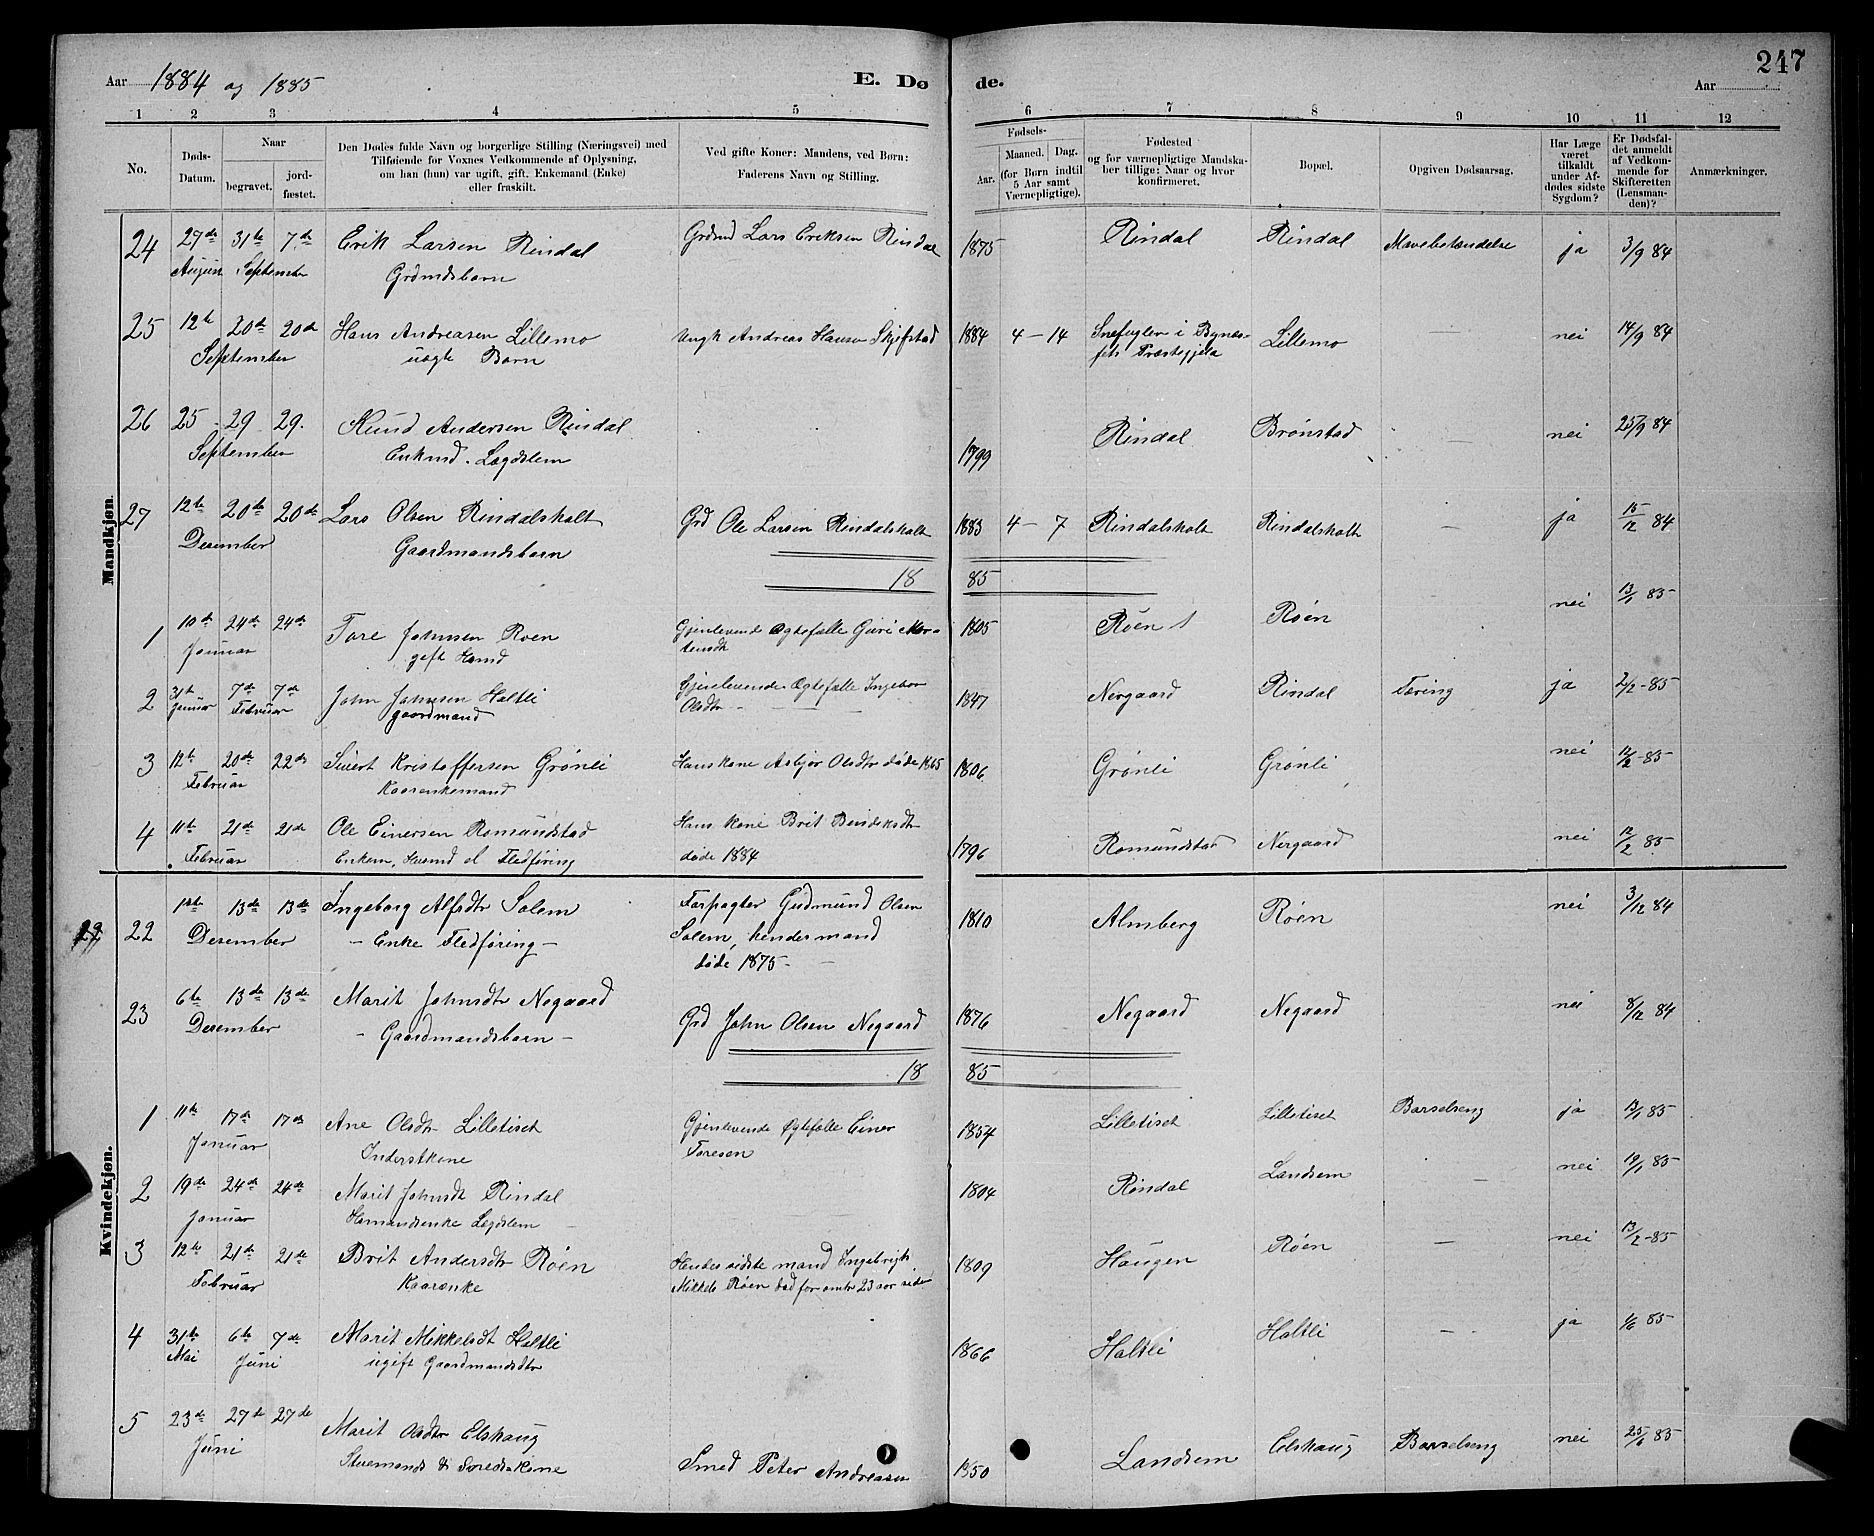 247
Aar 1884 og 1885 E. Døde. Aar
1 2 3 4 5 6 7 8 9 10 11 12
No. Døds-Datum. Naar begravet. jord-fæstet. Den Dødes fulde Navn og borgerlige Stilling (Næringsvei) med Tilføiende for Voxnes Vedkommende af Oplysning, om han (hun) var ugift, gift, Enkemand (Enke) eller fraskilt. Ved gifte Koner: Mandens, ved Børn: Faderens Navn og Stilling. Fødsels- Aar. Maaned. Dag. (for Børn indtil 5 Aar samt Værnepligtige). Fødested og for værnepligtige Mandskaber tillige: Naar og hvor konfirmeret. Bopæl. Opgiven Dødsaarsag. Har Læge været tilkaldt under Afdødes sidste Sygdom? Er Dødsfaldet anmeldt af Vedkommende for Skifteretten (Lensmanden)? Anmærkninger.
Mandkjøn.
24 27de 31te 7de Erik Larsen Rindal Grdmd Lars Eriksen Rindal 1875 Rindal Rindal Mavebetændelse ja 3/9 84
August September Grdmdsbarn
25 12te 20de 20de Hans Andreasen Lillemo Ungk Andreas Hansen Skjefstad 1884 4 – 14 Snefuglen i Bynes- Lillemo – nei 14/9 84
September uægte Barn fets Præstegjeld
26 25 29 29. Knud Andersen Rindal 1799 Rindal Brønstad – nei 25/9 84
September Enkmd. Lægdslem
27 12te 20de 20de Lars Olsen Rindalsholt Grd Ole Larsen Rindalsholt 1883 4 – 7 Rindalsholt Rindalsholt – ja 15/12 84
Desember Gaardmandsbarn
1885
1 10de 24de 24de Tore Johnsen Roen Gjenlevende Ægtefælle Guri Mor- 1805 Røen Røen nei 13/1 85
Januar gift Hsmd tensdt
2 31te 7de 7de John Johnsen Holtli Gjenlevende Ægtefælle Ingebor 1847 Nergaard Rindal Tæring ja 2/2 - 85
Januar Februar gaardmand Olsdtr – – –
3 12te 20de 22de Sivert Kristoffersen Grønli Hans kone Asbjør Olsdtr døde 1865 1806 Grønli Grønli nei 12/2 - 85
Februar Kaarenkemand
4 11te 21de 21de Ole Einersen Romundstad Hans kone Brit Bendiksdtr 1796 Romundstad Nergaard nei 12/2 85
Februar Enkem, Husmd el Fledføring døde 1884
Kvindekjøn.
22 1ste 13de 13de Ingeborg Alfsdtr Solem Forpagter Gudmund Olsen 1810 Almberg Røen nei 3/12 84
Desember – Enke Fledføring – Solem, hendes mand
døde 1875 – –
23 6te 13de 13de Marit Johnsdtr Negaard Grd John Olsen Negaard 1876 Negaard Negaard nei 8/12 84
Desember – Gaardmandsbarn –
1885
1 11te 17de 17de Ane Olsdtr Lilletiset Gjenlevende Øgtefælle Einer 1854 Lilletiset Lilletiset Barselseng ja 13/1 85
Januar Inderstkone Toresen
2 19de 24de 24de Marit Johnsdt Rindal 1804 Rindal Landsem – nei 19/1 85
Januar Hsmandsenke Lægdslem –
3 12te 21de 21de Brit Andersdtr Røen Hendes sidste mand Ingebrigt 1809 Haugen Røen – nei 13/2 - 85
Februar Kaarenke Mikkels Røen død for omtr 23 aar siden
4 31te 6te 7de Marit Mikkelsdt Holtli 1866 Holtli Holtli – ja 1/6 85
Mai Juni ugift Gaardmandsdtr
5 23de 27de 27de Marit Olsdtr Elshaug Smed Peter Andreasen 1850 Landsem Elshaug Barselseng nei 25/6 85
Juni